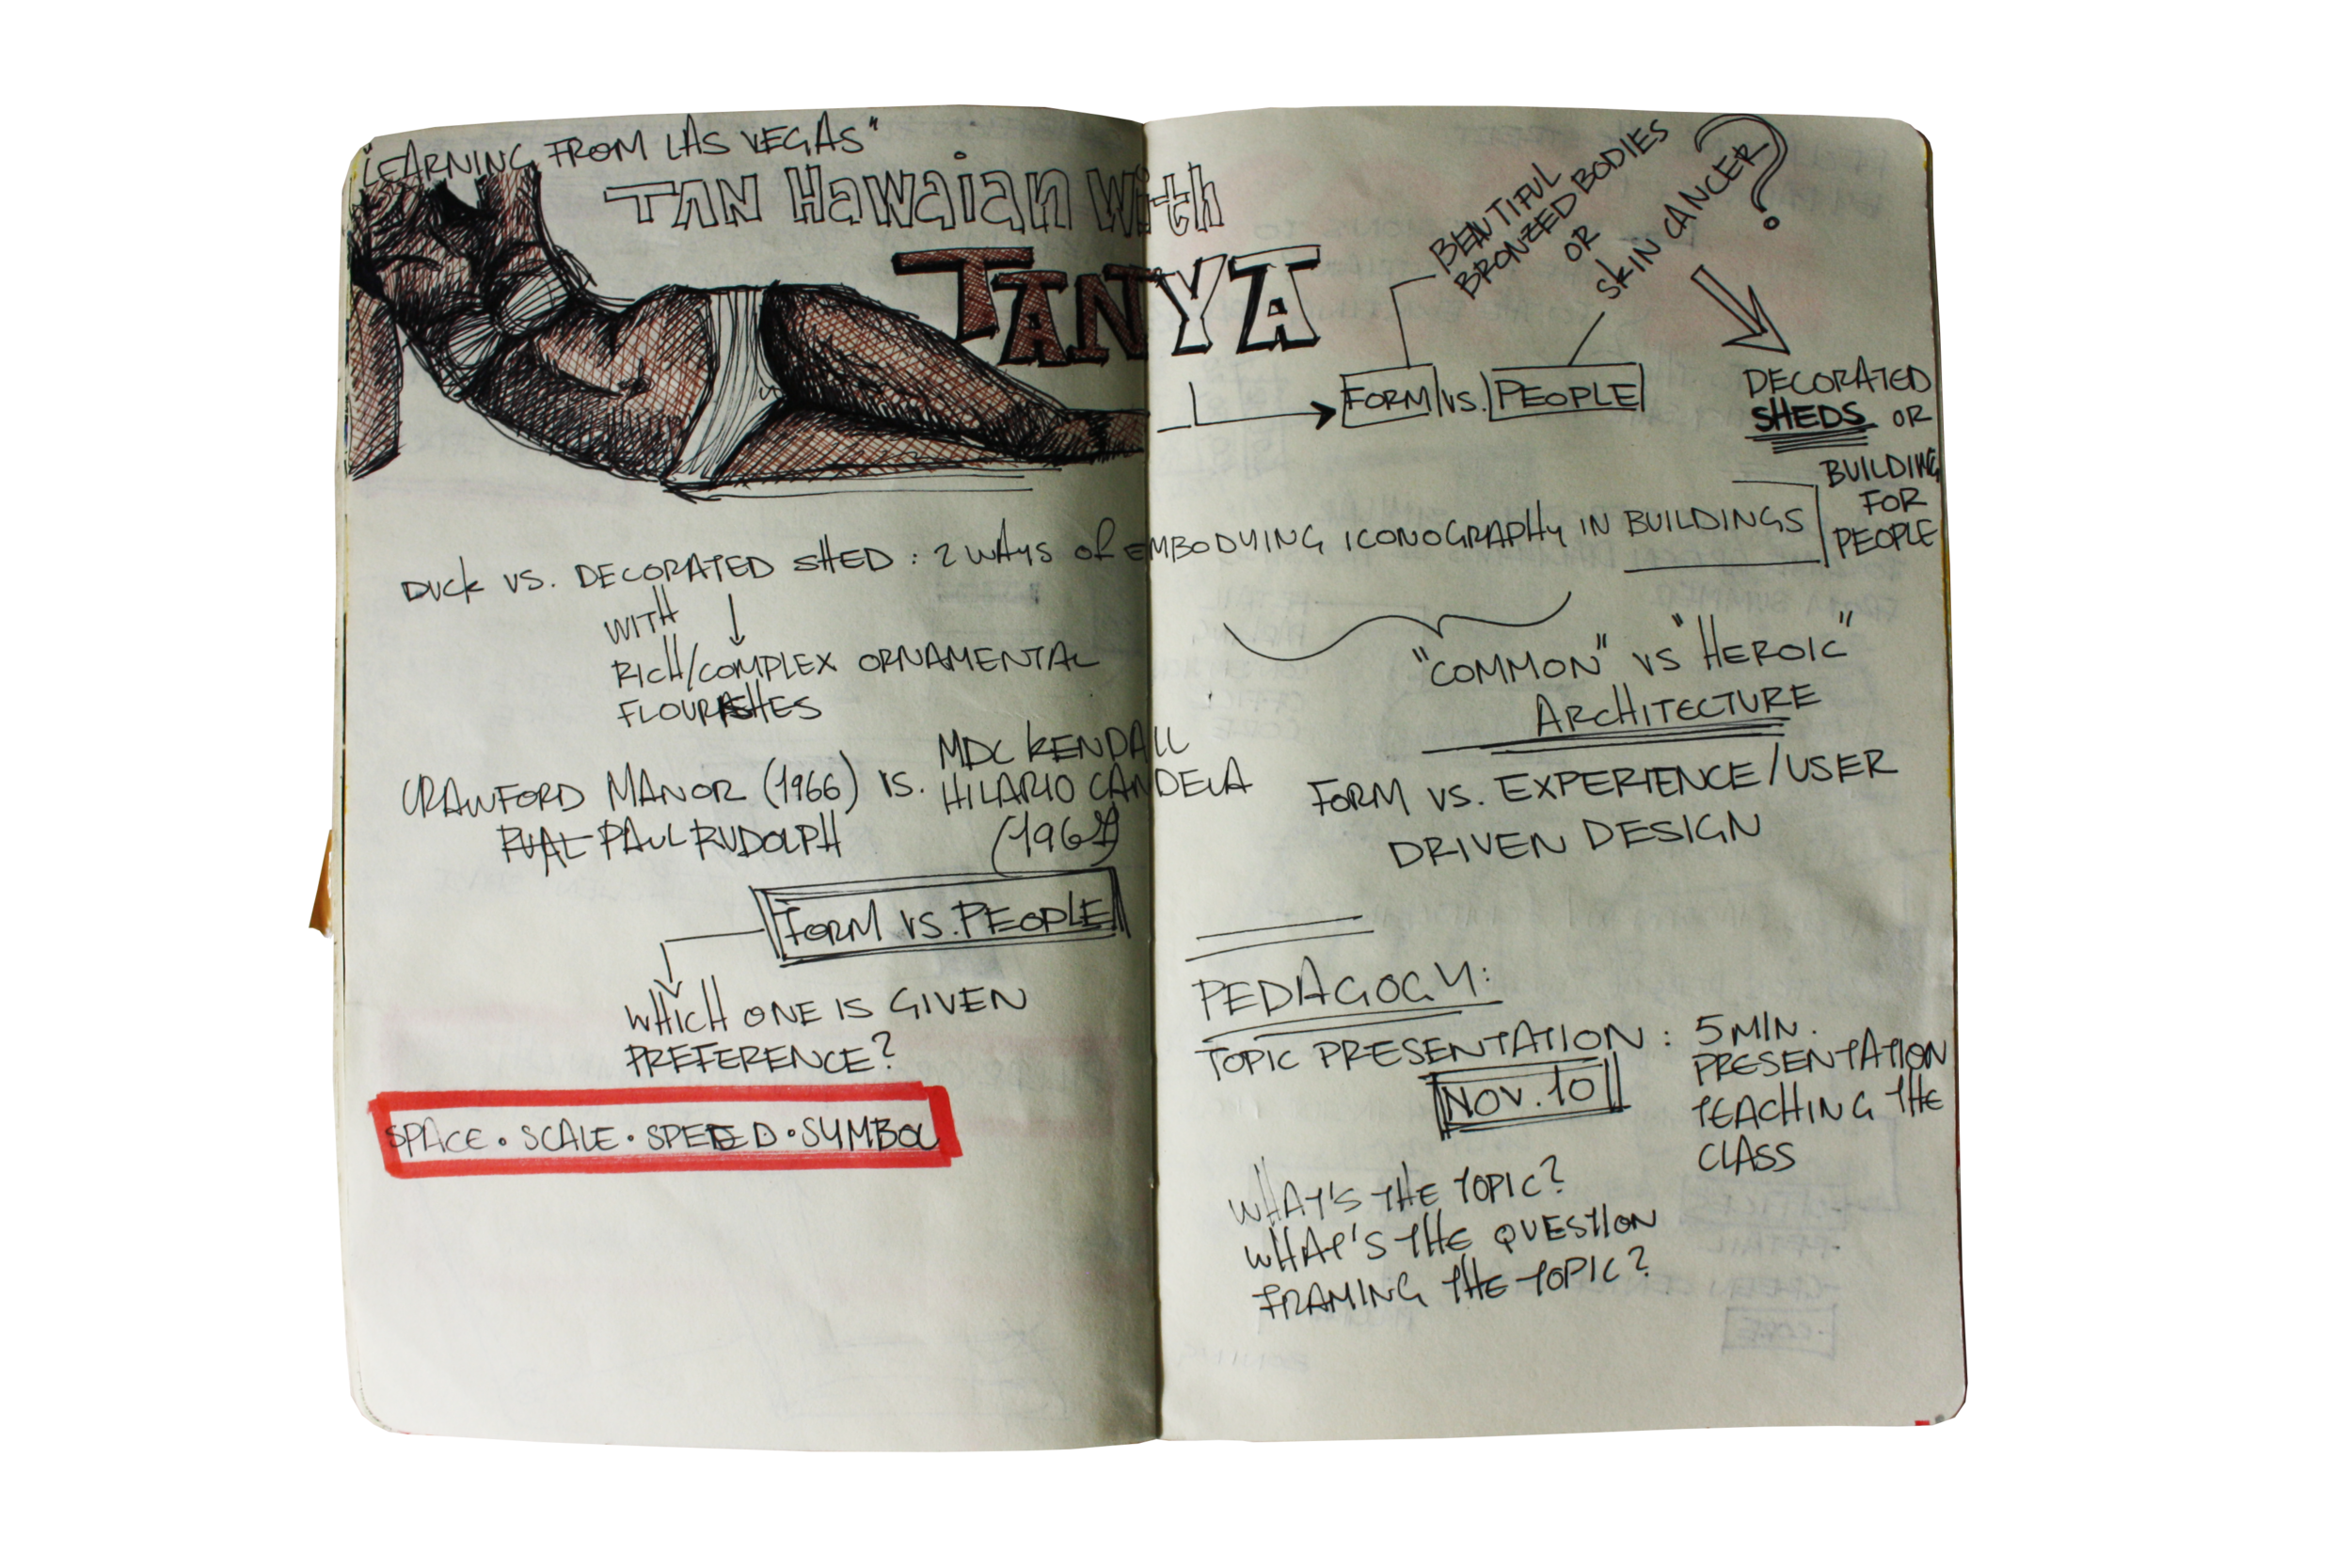 "LEARNING FROM LAS VEGAS"
TAN Hawaian With
TANYA
DUCK VS. DECORATED SHED : 2 WAYS OF EMBODYING ICONOGRAPHY IN BUILDINGS
WITH
RICH/COMPLEX ORNAMENTAL
FLOURISHES
CRAWFORD MANOR (1966) VS.
PAUL RUDOLPH
MDC KENDALL
HILARIO CANDELA
FORM VS. PEOPLE
WHICH ONE IS GIVEN
PREFERENCE?
SPACE • SCALE • SPEED • SYMBOL
BEAUTIFUL
BRONZED BODIES
OR
SKIN CANCER?
FORM VS. PEOPLE
DECORATED
SHEDS OR
BUILDING
FOR
PEOPLE
"COMMON" VS "HEROIC"
ARCHITECTURE
FORM VS. EXPERIENCE/USER
DRIVEN DESIGN
PEDAGOGY:
TOPIC PRESENTATION : 5 MIN.
PRESENTATION
TEACHING THE
CLASS
NOV. 10
WHAT'S THE TOPIC?
WHAT'S THE QUESTION
FRAMING THE TOPIC?